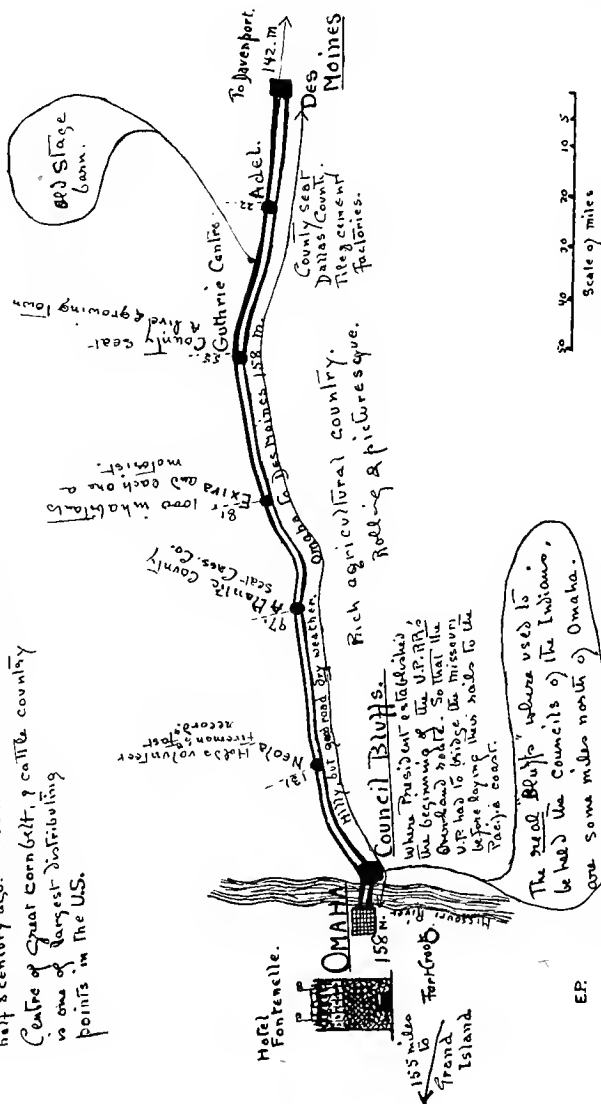 half a century ago.
Centre of Great cornbelt, & cattle country
is one of largest distributing
points in the U.S.
Hotel
Fontenelle.
OMAHA
158 M.
Fort Crook
155 miles
to
Grand
Island
Missouri
River
Council Bluffs.
Where President established
the beginning of the U.P.RR's
Overland route. So that the
U.P. had to bridge the missouri
before laying their rails to the
Pacific coast.
The real "Bluffs" where used to
be held the councils of the Indians,
are some miles north of Omaha.
Hilly, but good road dry weather.
Omaha to Des Moines 158 m.
131.-
Neola
Holds volunteer
firemen's fast
record.
97.-
Atlantic County
seat Cass. Co.
81.- 1000 inhabitants
Exira and each one a
motorist.
Rich agricultural country.
Rolling & picturesque.
55.-
Guthrie Centre.
County seat
A live & growing town
Old Stage
barn.
22.-
Adel.
County seat
Dallas County.
Tile & cement
Factories.
To Davenport.
142. m
Des
Moines
50 40 30 20 10 5
Scale of miles
E.P.